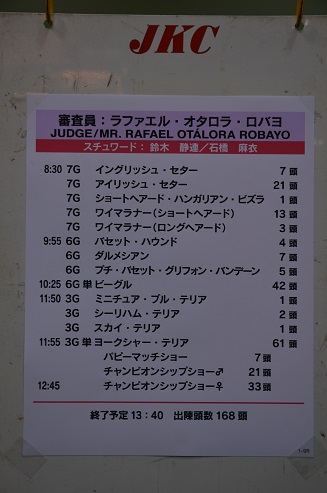 JKC
審査員：ラファエル・オタロラ・ロバヨ
JUDGE/MR. RAFAEL OTÁLORA ROBAYO
スチュワード： 鈴木 静連／石橋 麻衣
8:30 7G イングリッシュ・セター 7頭
7G アイリッシュ・セター 21頭
7G ショートヘアード・ハンガリアン・ビズラ 1頭
7G ワイマラナー（ショートヘアード） 13頭
7G ワイマラナー（ロングヘアード） 3頭
9:55 6G バセット・ハウンド 4頭
6G ダルメシアン 7頭
6G プチ・バセット・グリフォン・バンデーン 5頭
10:25 6G 単 ビーグル 42頭
11:50 3G ミニチュア・ブル・テリア 1頭
3G シーリハム・テリア 2頭
3G スカイ・テリア 1頭
11:55 3G 単 ヨークシャー・テリア 61頭
パピーマッチショー 7頭
チャンピオンシップショー♂ 21頭
12:45 チャンピオンシップショー♀ 33頭
終了予定 13：40 出陳頭数 168 頭